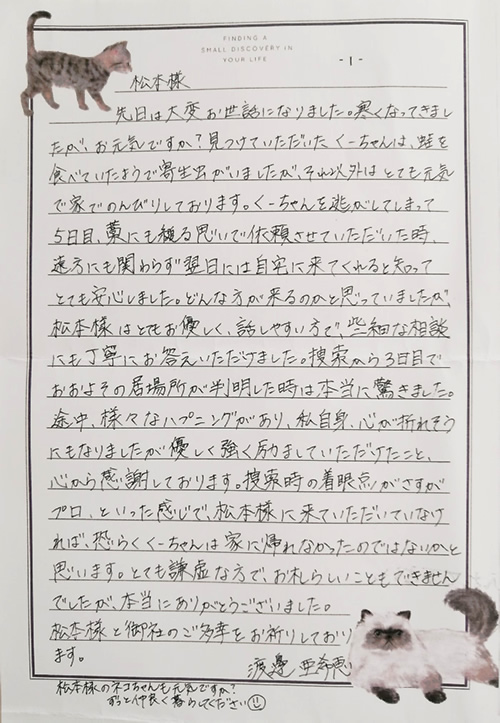 FINDING A
SMALL DISCOVERY IN
YOUR LIFE
-1-
松本様
先日は大変お世話になりました。寒くなってきまし
たが、お元気ですか?見つけていただいたくーちゃんは、蛙を
食べていたようで寄生虫がいましたが、それ以外はとても元気
で家でのんびりしております。くーちゃんを逃がしてしまって
5日目、藁にも縋る思いで依頼させていただいた時、
遠方にも関わらず翌日には自宅に来てくれると知って
とても安心しました。どんな方が来るのかと思っていましたが、
松本様はとてもお優しく、話しやすい方で、些細な相談
にも丁寧にお答えいただけました。捜索から3日目で
おおよその居場所が判明した時は本当に驚きました。
途中、様々なハプニングがあり、私自身、心が折れそう
にもなりましたが優しく強く励ましていただけたこと、
心から感謝しております。捜索時の着眼点がさすが
プロ、といった感じで、松本様に来ていただいていなけ
れば、恐らくくーちゃんは家に帰れなかったのではないかと
思います。とても謙虚な方で、お礼らしいこともできません
でしたが、本当にありがとうございました。
松本様と御社のご多幸をお祈りしており
ます。
渡邊 亜希恵
松本様のネコちゃんも元気ですか?
ずっと仲良く暮らしてください☺